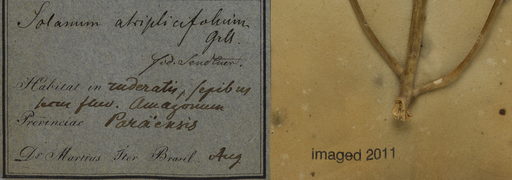 Solanum atriplicifolium
Gils.
Jod. Sendtner.
Habitat in ruderatis, sepibus
prov. fluv. Amazonum
Provinciae Paraënsis
Dr. Martius Iter Brasil. Aug
imaged 2011